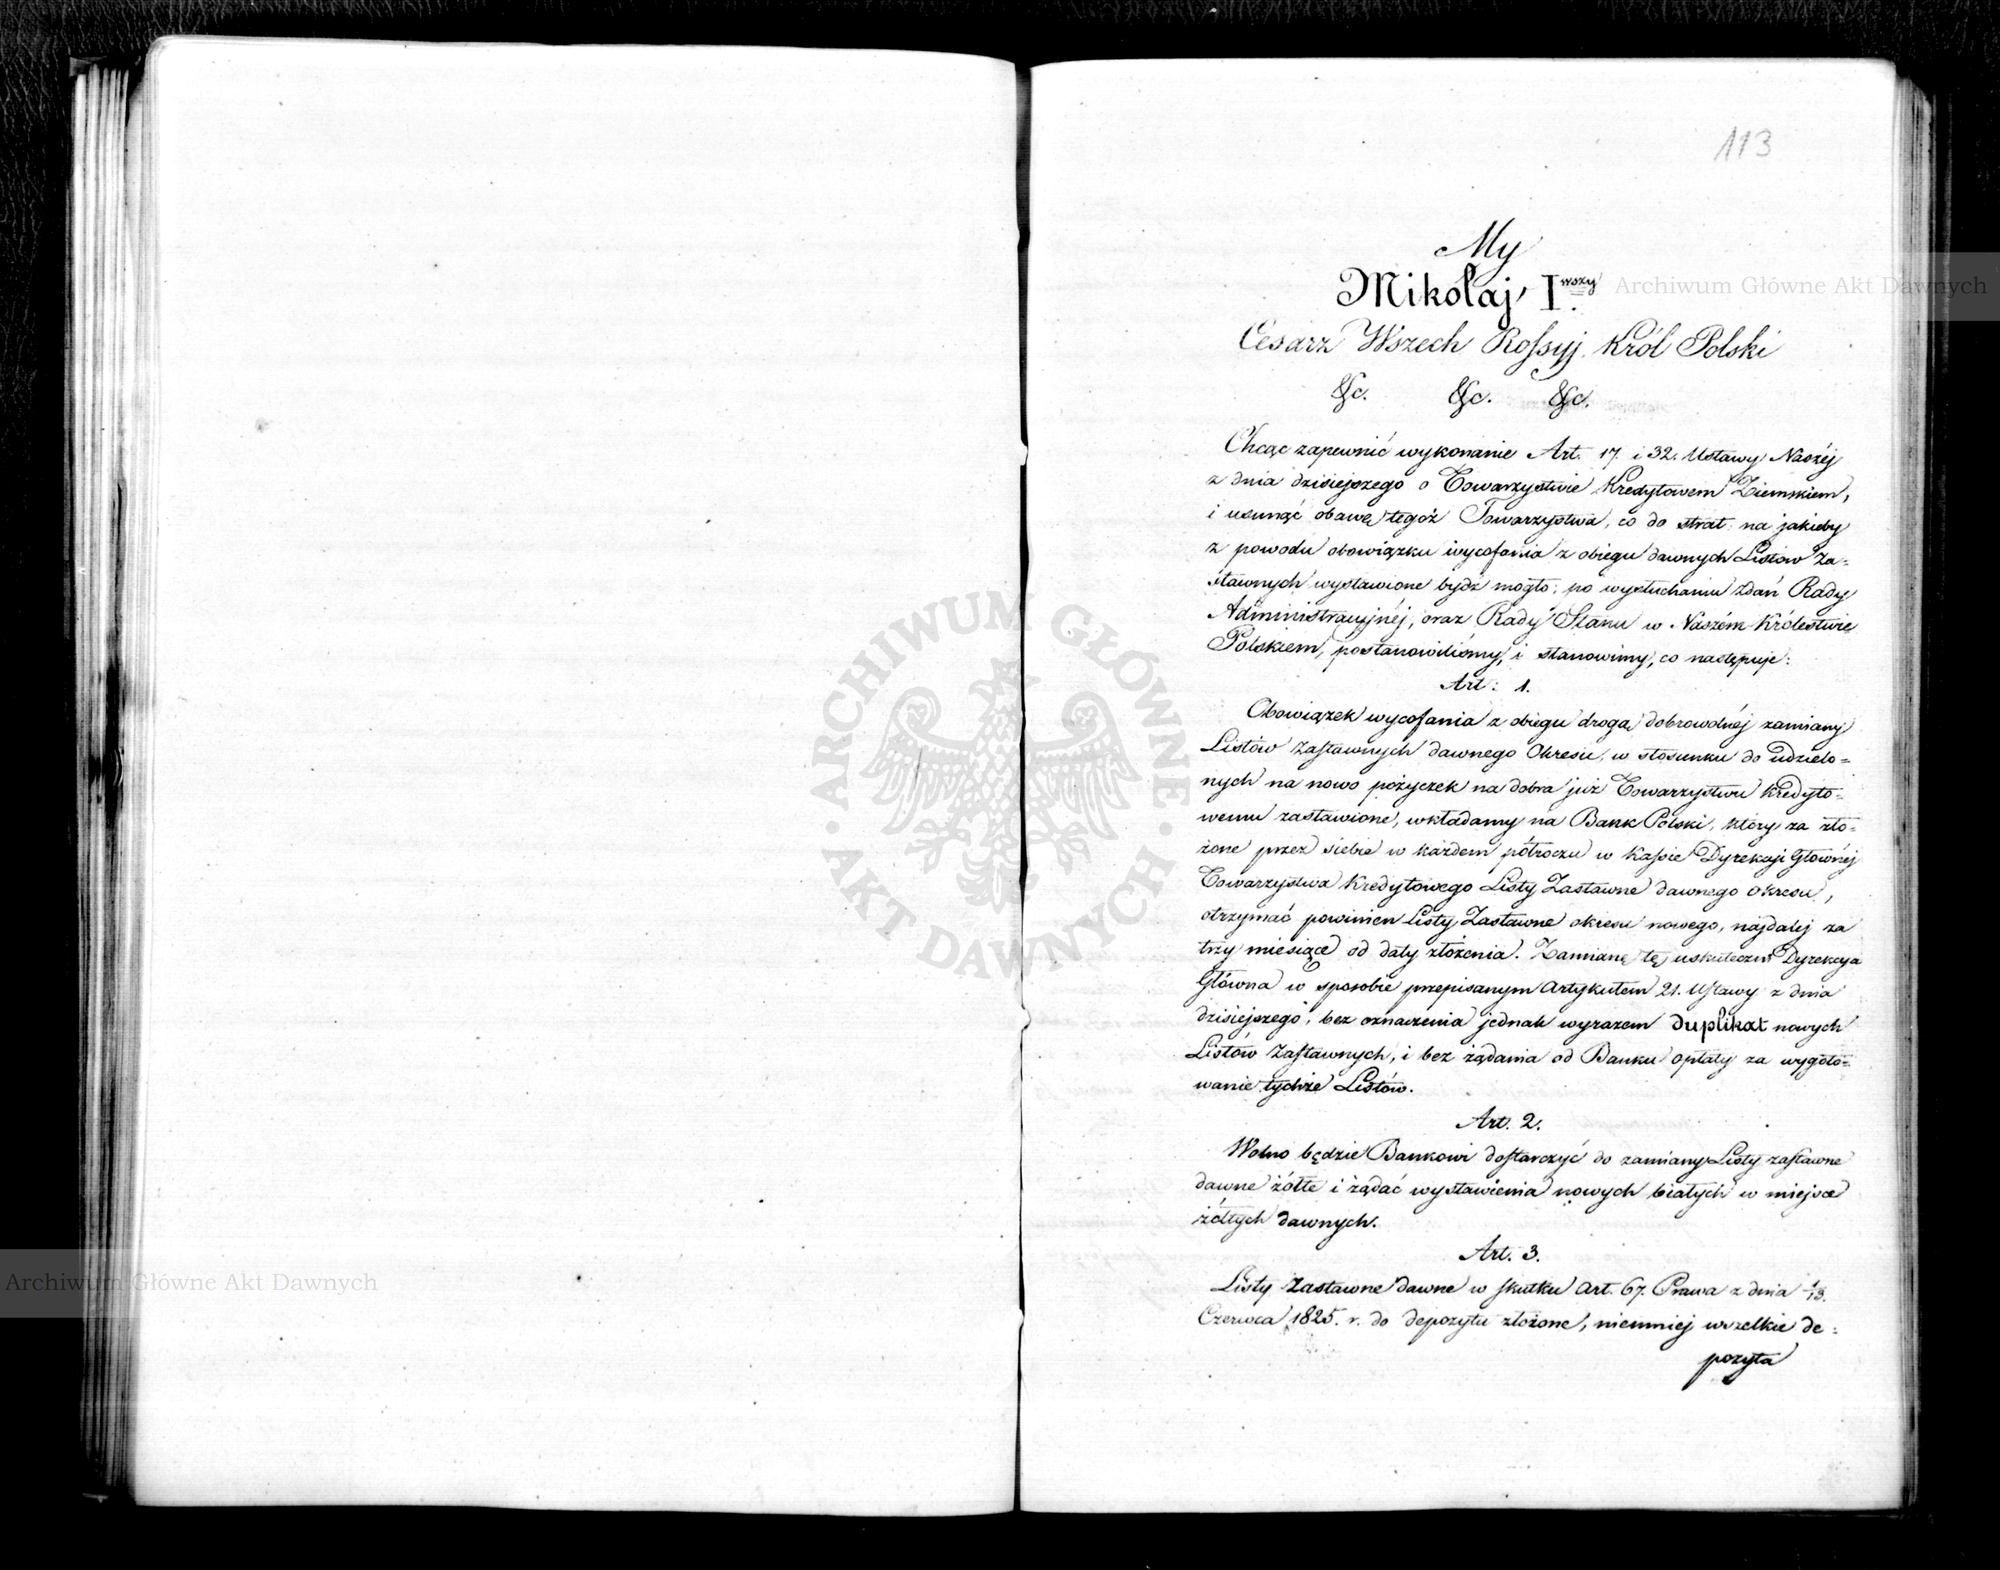 113
My
Mikołaj Iwszy
Cesarz Wszech Rossyj Król Polski
&c. &c. &c.
Chcąc zapewnić wykonanie Art. 17. i 32. Ustawy Naszéj
z dnia dzisiejszego o Towarzystwie Kredytowem Ziemskiem,
i usunąć obawę tegoż Towarzystwa, co do strat na jakieby
z powodu obowiązku wycofania z obiegu dawnych Listów Za=
stawnych wystawione bydź mogło; po wysłuchaniu zdań Rady
Administracyjnéj, oraz Rady Stanu w Naszém Królestwie
Polskiem, postanowiliśmy, i stanowimy, co następuje:
Art: 1.
Obowiązek wycofania z obiegu drogą dobrowolnéj zamiany
Listów Zastawnych dawnego Okresu, w stosunku do udzielo=
nych na nowo pożyczek na dobra już Towarzystwu Kredyto=
wemu zastawione, wkładamy na Bank Polski, który za zło=
żone przez siebie w każdem półroczu w Kassie Dyrekcji Głównéj
Towarzystwa Kredytowego Listy Zastawne dawnego okresu,
otrzymać powinien Listy Zastawne okresu nowego, najdaléj za
trzy miesiące od daty złożenia. Zamianę tę uskuteczni Dyrekcya
Główna w sposobie przepisanym Artykułem 21. Ustawy z dnia
dzisiejszego, bez oznaczenia jednak wyrazem duplikat nowych
Listów Zastawnych, i bez żądania od Banku opłaty za wygoto=
wanie tychże Listów.
Art. 2.
Wolno będzie Bankowi dostarczyć do zamiany Listy zastawne
dawne żółte i żądać wystawienia nowych białych w miejsce
żółtych dawnych.
Art. 3.
Listy Zastawne dawne w skutku Art. 67. Prawa z dnia 1/13.
Czerwca 1825. r. do depozytu złożone, niemniej wszelkie de=
pozyta
Archiwum Główne Akt Dawnych
Archiwum Główne Akt Dawnych
ARCHIWUM GŁÓWNE · AKT DAWNYCH ·